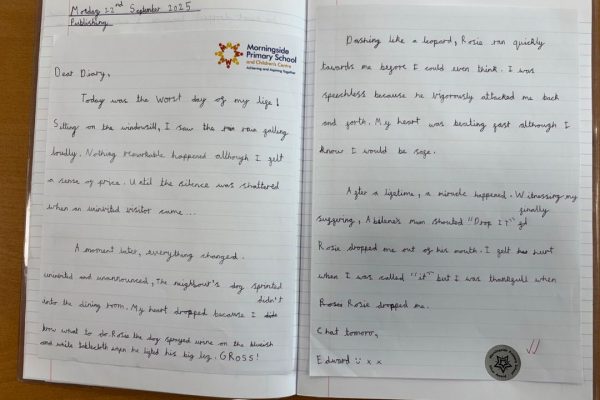 Monday 22nd September 2025
Publishing
Morningside
Primary School
and Children's Centre
Achieving and Aspiring Together
Dear Diary,
Today was the worst day of my life!
Sitting on the windowsill, I saw the rain falling
loudly. Nothing remarkable happened although I felt
a sense of price. Until the silence was shattered
when an uninvited visitor came...
A moment later, everything changed.
uninvited and unannounced, The neighbour's dog sprinted
into the dining room. My heart dropped because I didn't
know what to do. Rosie the dog sprayed urine on the blueish
and white tablecloth when he lifted his big leg. GROSS!
Dashing like a leopard, Rosie ran quickly
towards me before I could even think. I was
speechless because he vigorously attacked me back
and forth. My heart was beating fast although I
know I would be safe.
After a lifetime, a miracle happened. Witnessing my
suffering, Abilene's mum shouted "Drop IT" finally
Rosie dropped me out of his mouth. I felt hurt
when I was called "it" but I was thankfull when
Rosie dropped me.
Chat tomoro,
Edward x x